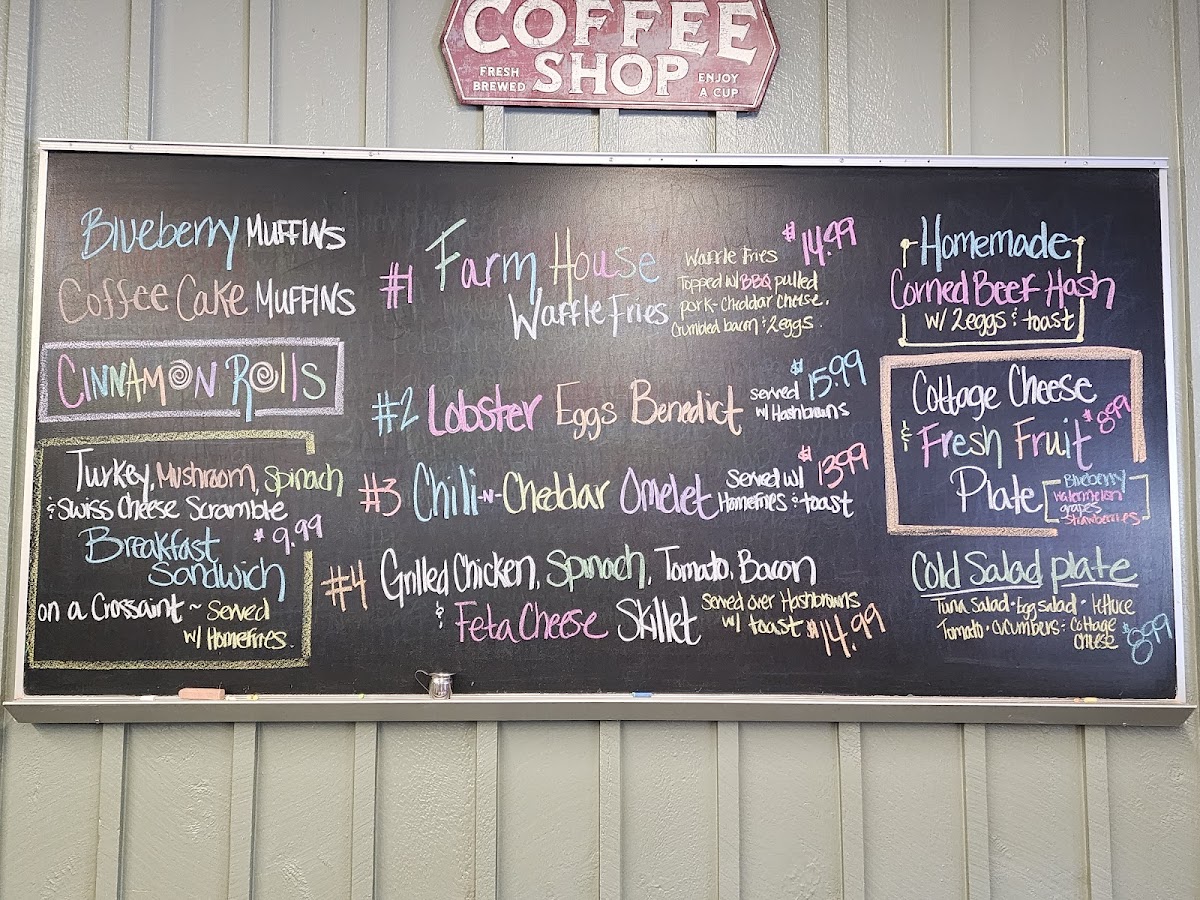 COFFEE
SHOP
FRESH
BREWED
ENJOY
A CUP
Blueberry MUFFINS
Coffee Cake MUFFINS
CINNAMON ROllS
Turkey, Mushroom, Spinach
& Swiss Cheese Scramble
Breakfast
Sandwich
$9.99
on a Crossaint ~ Served
w/ Homefries.
#1 Farm House
Waffle Fries
Waffle Fries
Topped w/ BBQ pulled
pork - Cheddar Cheese,
Crumbled bacon & 2eggs.
$14.99
#2 Lobster Eggs Benedict
served
w/ Hashbrowns
$15.99
#3 Chili -n- Cheddar Omelet
Served w/
Homefries & toast
$13.99
#4 Grilled Chicken, Spinach, Tomato, Bacon
& Feta Cheese Skillet
Served over Hashbrowns
w/ toast $14.99
Homemade
Corned Beef Hash
w/ 2eggs & toast
Cottage Cheese
& Fresh Fruit
Plate
$8.99
Blueberry
watermelon
grapes
Strawberries
Cold Salad plate
Tuna Salad · Egg salad · lettuce
Tomato · Cucumbers & Cottage
Cheese
$8.99